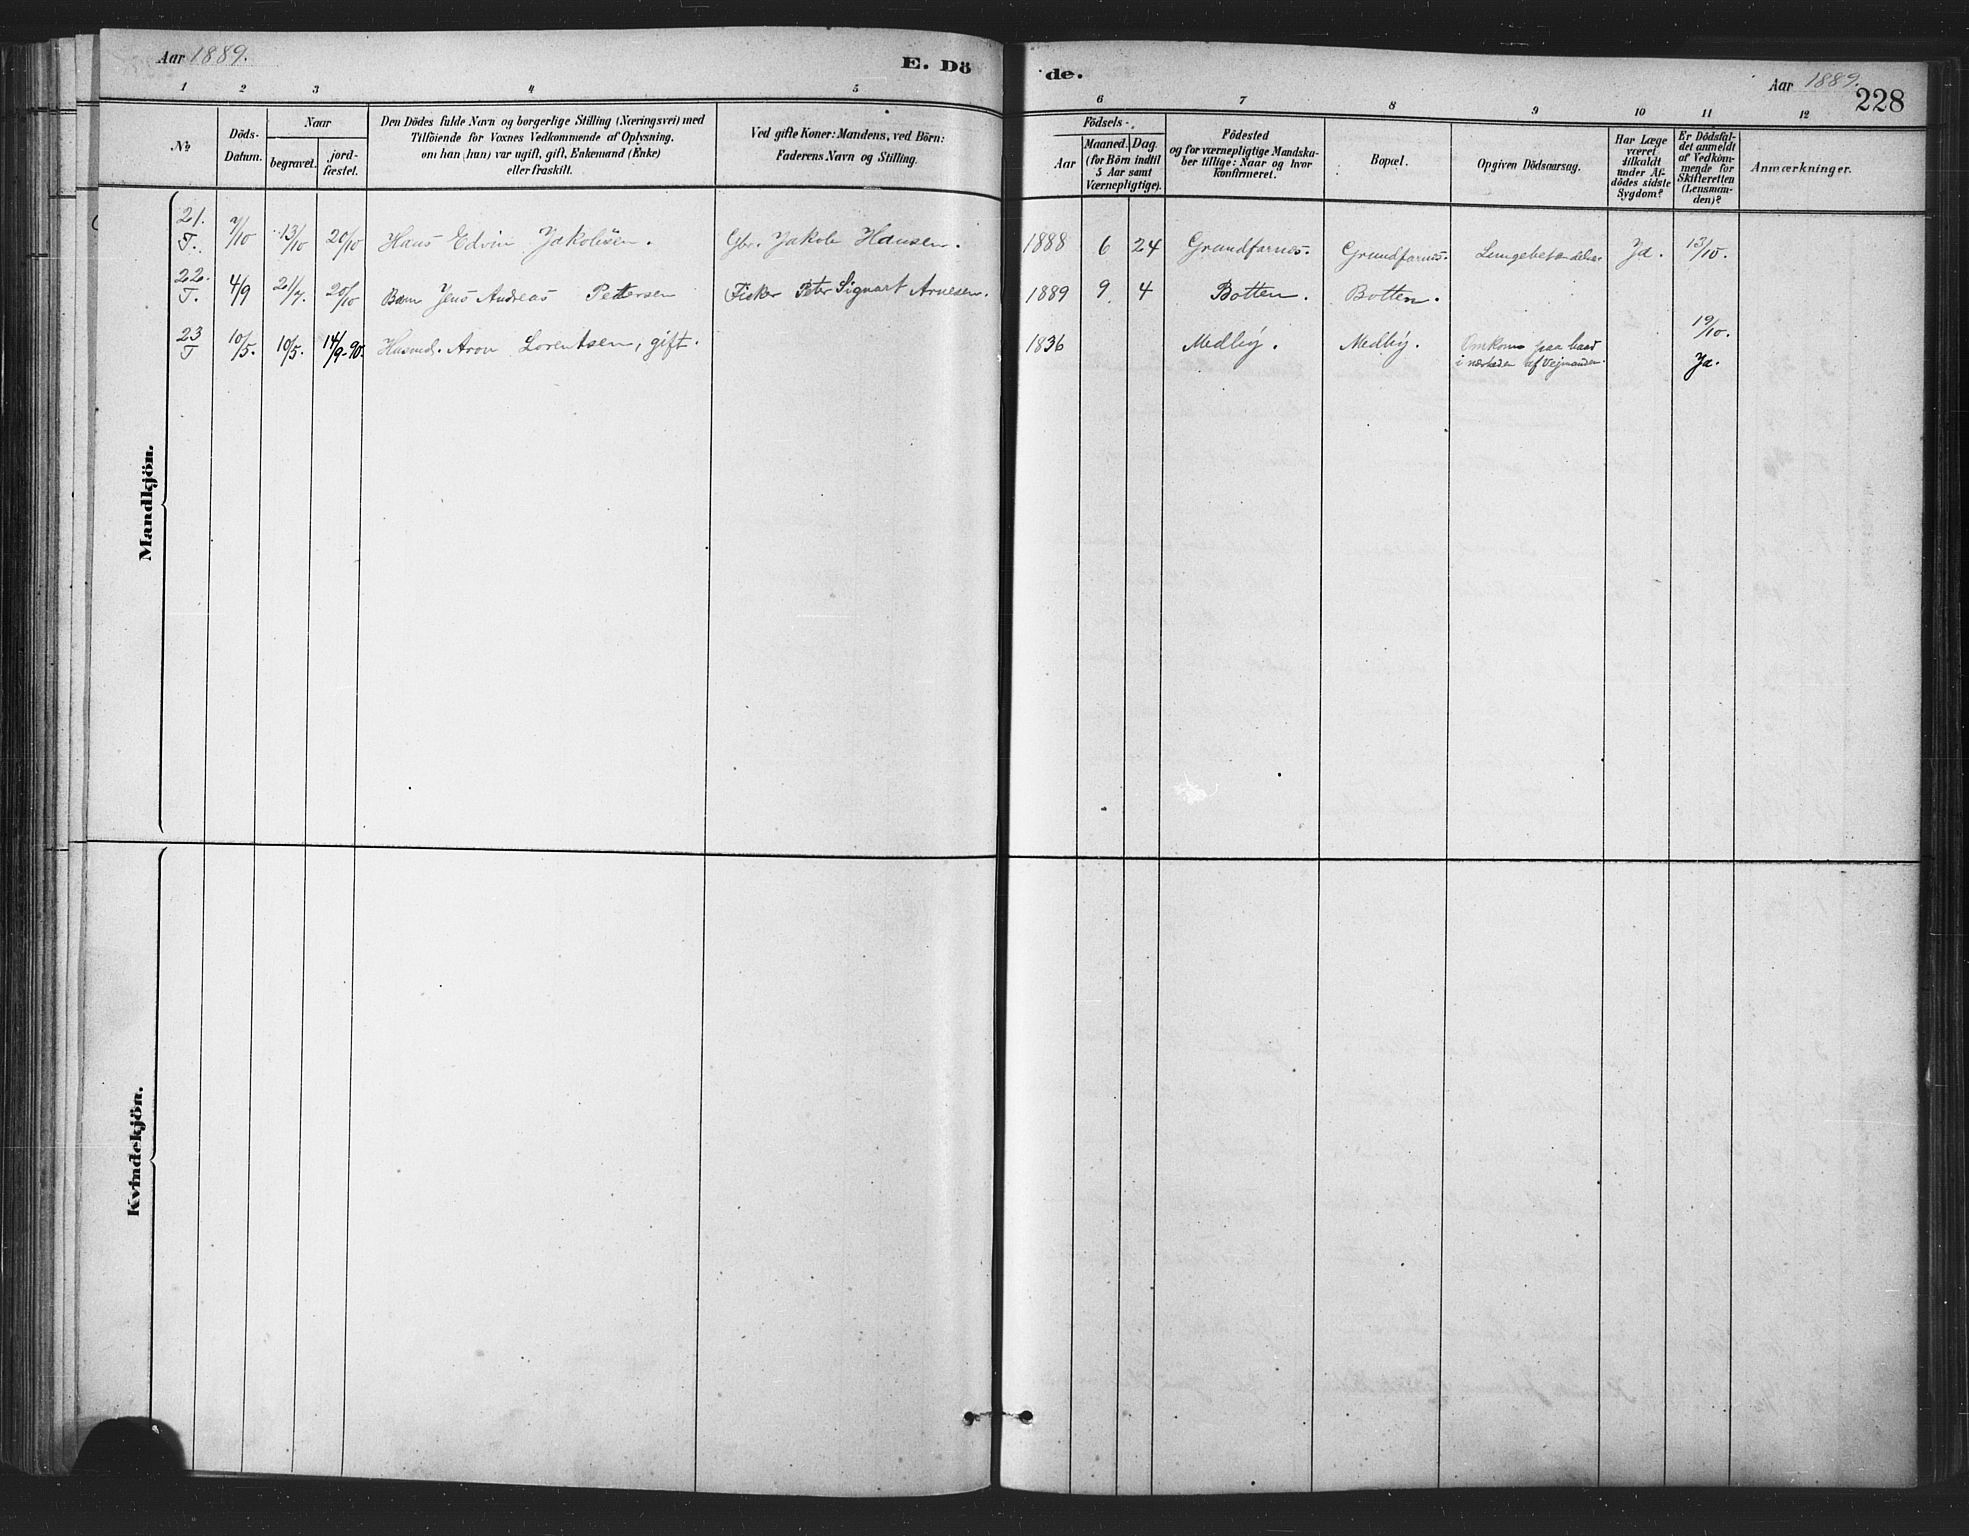 Aar 1889.
E. Dö
de.
Aar 1889.
228
1 2 3 4 5 6 7 8 9 10 11 12
No
Döds-
Datum.
Naar
begravet.
jord-
fæstet.
Den Dödes fulde Navn og borgerlige Stilling (Næringsvei) med
Tilföiende for Voxnes Vedkommende af Oplysning.
om han (hun) var ugift, gift, Enkemand (Enke)
eller fraskilt.
Ved gifte Koner: Mandens, ved Börn:
Faderens Navn og Stilling.
Födsels-
Aar
Maaned. Dag.
(for Börn indtil
5 Aar samt
Værnepligtige).
Födested
og for værnepligtige Mandska-
ber tillige: Naar og hvor
Konfirmeret.
Bopæl.
Opgiven Dödsaarsag.
Har Læge
været
tilkaldt
under Af-
dödes sidste
Sygdom?
Er Dödsfal-
det anmeldt
af Vedkom-
mende for
Skifteretten
(Lensman-
den)?
Anmærkninger.
Mandkjön.
21. T. 7/10 13/10 20/10 Hans Edvin Jakobsen. Gbr. Jakob Hansen. 1888 6 24 Grundfarnes. Grundfarnes. Lungebetændelse Ja. 13/10.
22. T. 4/9 21/7. 20/10 Barn Jens Andreas Pettersen Fisker Peter Sigvart Arnesen. 1889 9 4 Botten. Botten.
19/10.
23 T 10/5. 10/5. 14/9-90. Husmd. Aron Lorentsen, gift. 1836 Medby. Medby. Omkom paa baad
i nærheden af Vejmanden. Ja.
Kvindekjön.